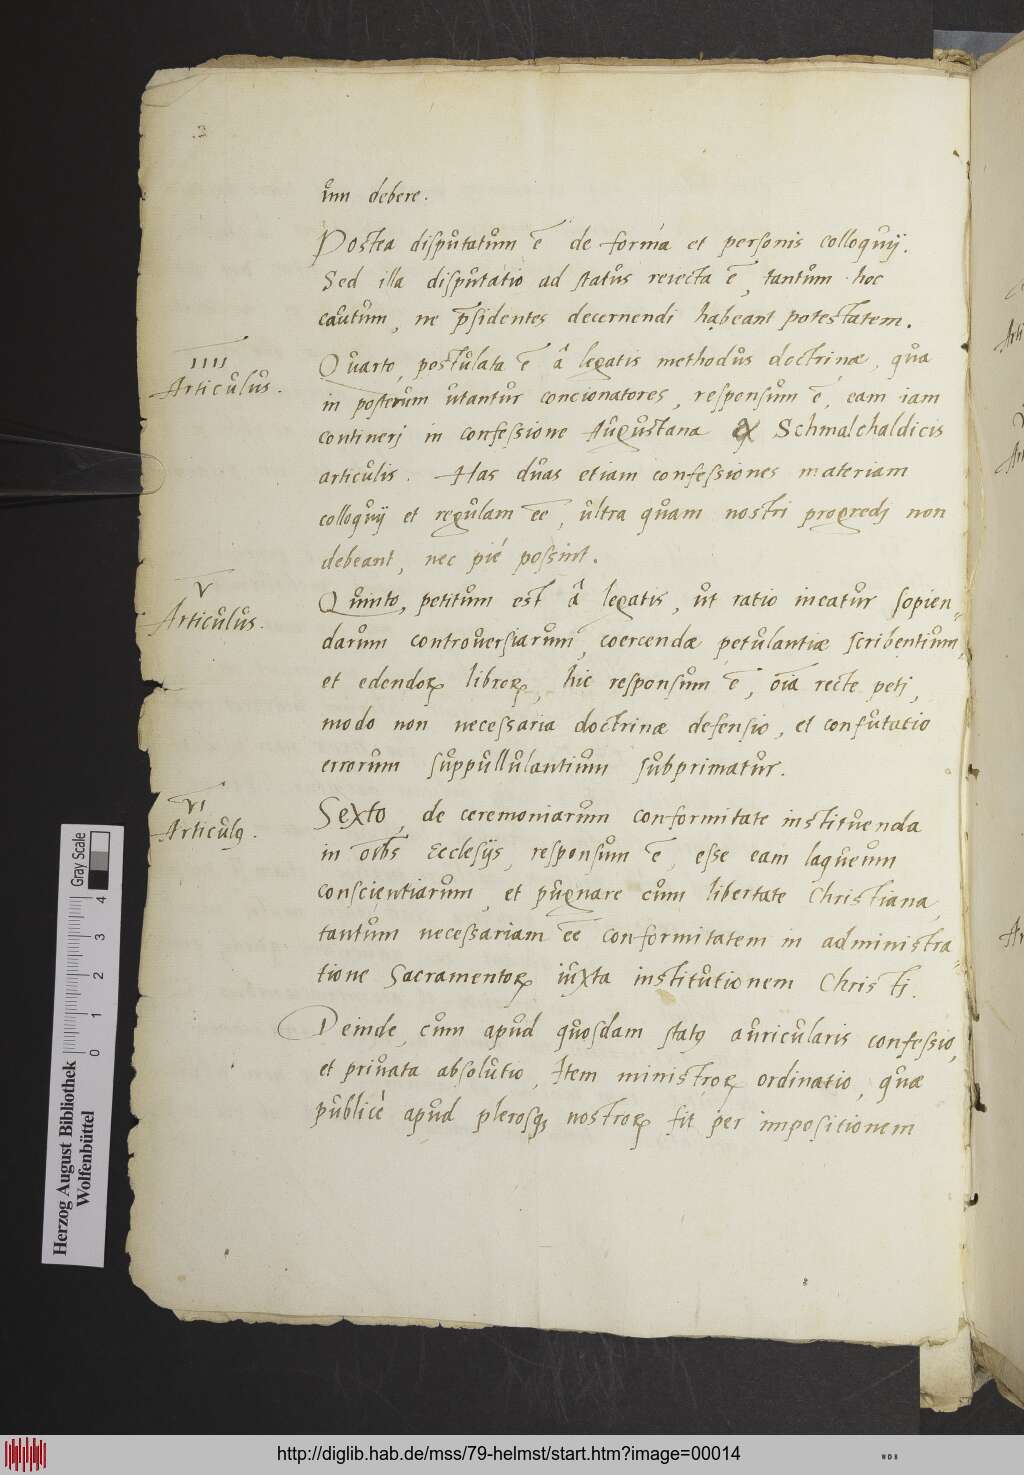 .2
iun debere.
Postea disputatum ē de forma et personis colloquij.
Sed illa disputatio ad status reiecta ē, tantum hoc
cautum, ne p̄sidentes decernendi habeant potestatem.
IIII
Articulus.
Quarto, postulata ē â legatis methodus doctrinæ, qua
in posterum utantur concionatores, responsum ē, eam iam
contineri in confessione Augustana & Schmalchaldicis
articulis. Has duas etiam confessiones materiam
colloquij et regulam ēē, ultra quam nostri progredj non
debeant, nec pié possint.
V
Articulus.
Quinto, petitum est â legatis, ut ratio ineatur sopien-
darum controuersiarum, coercendæ petulantiæ scribentium,
et edendoꝝ libroꝝ, hic responsum ē, oīa recte petj,
modo non necessaria doctrinæ defensio, et confutatio
errorum suppullulantium subprimatur.
VI
Articulꝰ.
Sexto, de ceremoniarum conformitate instituenda
in oībs Ecclesijs, responsum ē, esse eam laqueum
conscientiarum, et pugnare cum libertate Christiana,
tantum necessariam ēē conformitatem in administra-
tione Sacramentoꝝ iuxta institutionem Christj.
Deinde, cum apud quosdam statꝰ auricularis confessio,
et priuata absolutio, Item ministroꝝ ordinatio, quæ
publicè apud plerosqꝫ nostroꝝ fit per impositionem
Herzog August Bibliothek
Wolfenbüttel
Gray Scale
0 1 2 3 4
http://diglib.hab.de/mss/79-helmst/start.htm?image=00014